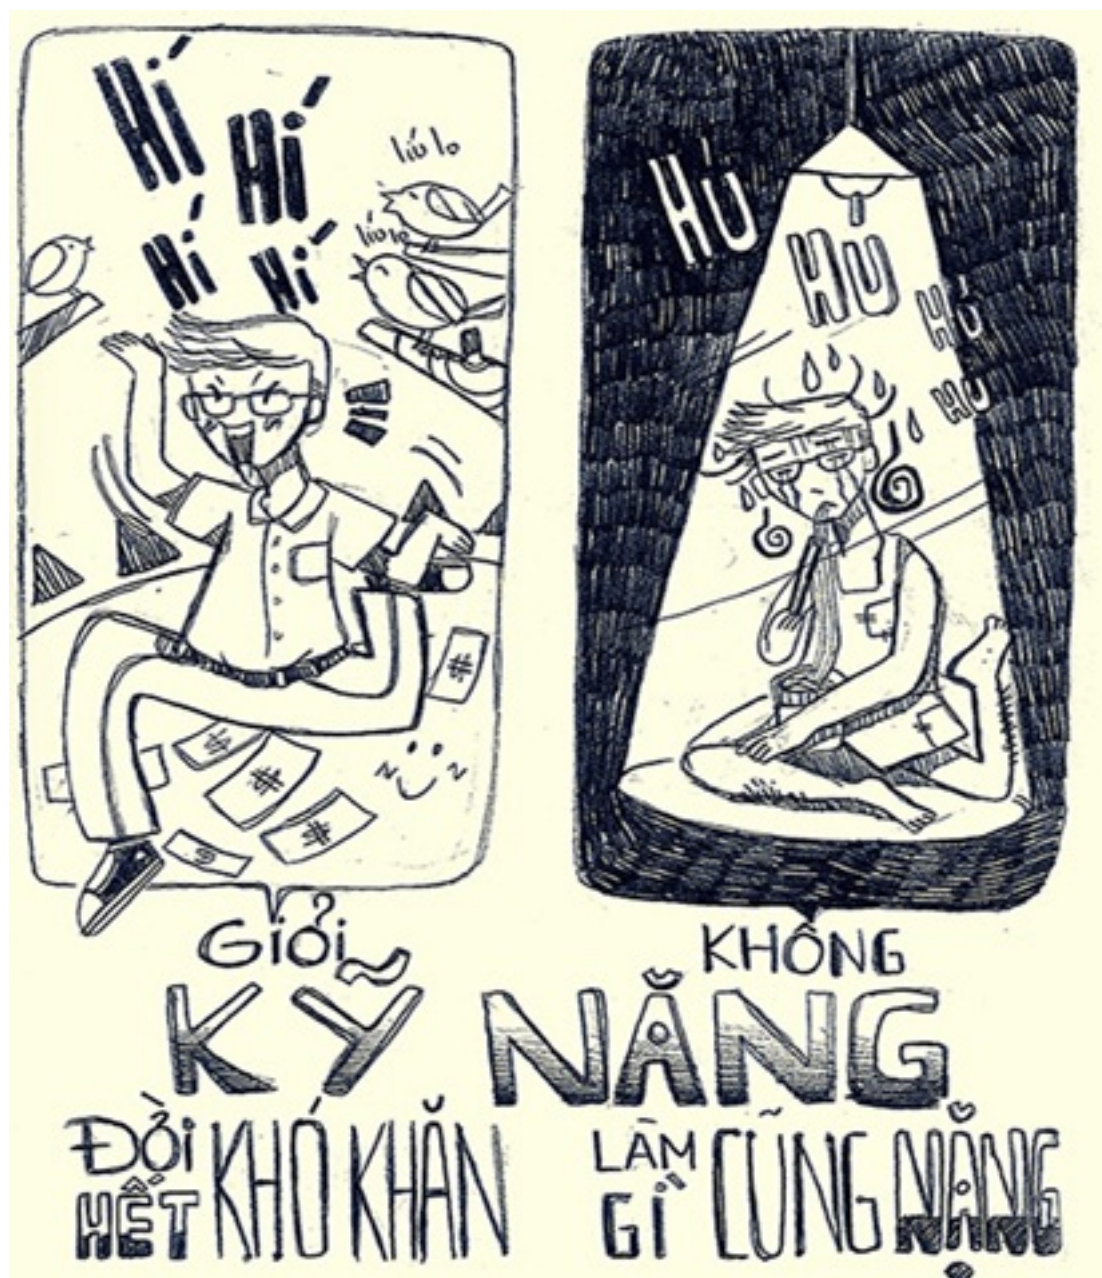 Hí
Hí
Hí
Hí
líu lo
líu lo
HU
HU
HU
HU
GIỎI
KHÔNG
KỸ NĂNG
ĐỜI
HẾT
KHÓ KHĂN
LÀM
GÌ
CŨNG
NẶNG